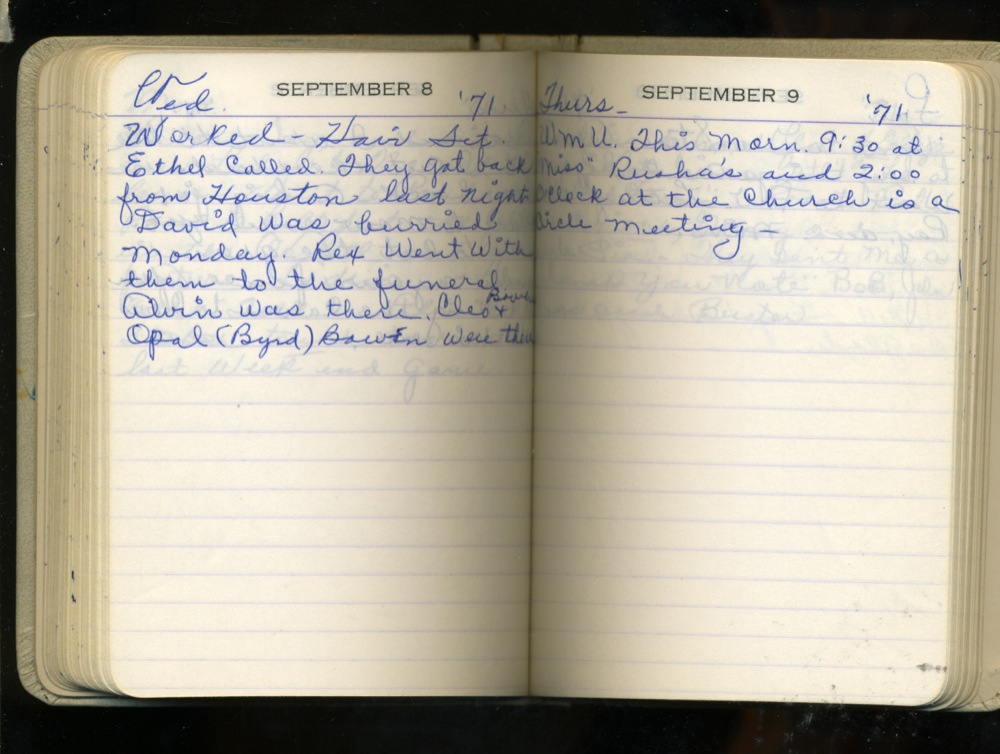 Wed. SEPTEMBER 8 '71
Worked - Hair Set.
Ethel Called. They got back
from Houston last night
David was burried
Monday. Rex Went With
them to the funeral.
Bowen
Alvin was there. Cleo +
Opal (Byrd) Bowen were there
last Week end Game
Thurs - SEPTEMBER 9 '71
WmU. This Morn. 9:30 at
"Miss" Rusha's and 2:00
O'clock at the Church is a
Circle meeting -